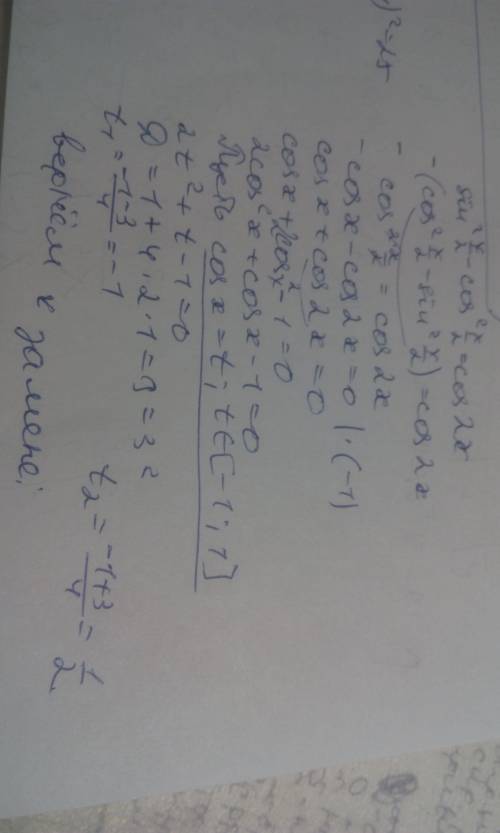 )² = 25
sin² x/2 - cos² x/2 = cos 2x
-(cos² x/2 - sin² x/2) = cos 2x
- cos 2x/2 = cos 2x
- cos x - cos 2x = 0 | · (-1)
cos x + cos 2x = 0
cos x + 2cos² x - 1 = 0
2cos² x + cos x - 1 = 0
Пусть cos x = t; t ∈ [-1; 1]
2t² + t - 1 = 0
D = 1 + 4 · 2 · 1 = 9 = 3²
t₁ = -1-3/4 = -1 t₂ = -1+3/4 = 1/2
вернём к замене: